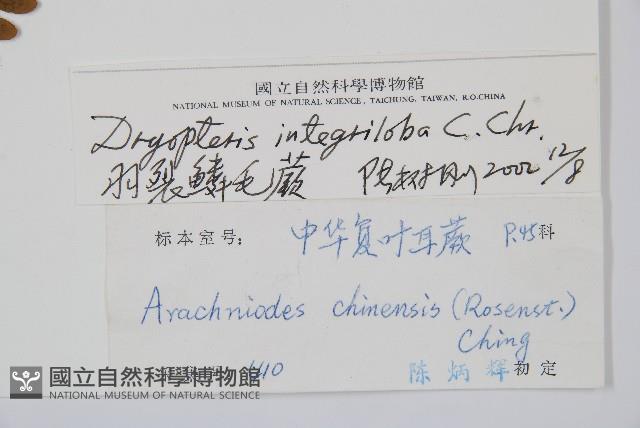 國立自然科學博物館
NATIONAL MUSEUM OF NATURAL SCIENCE, TAICHUNG, TAIWAN, R.O.CHINA
Dryopteris integriloba C. Chr.
羽裂鱗毛蕨 2002 12/8
标本室号: 中华复叶耳蕨 P.45科
Arachniodes chinensis (Rosenst.)
Ching
1410 陈炳辉 初定
國立自然科學博物館
NATIONAL MUSEUM OF NATURAL SCIENCE